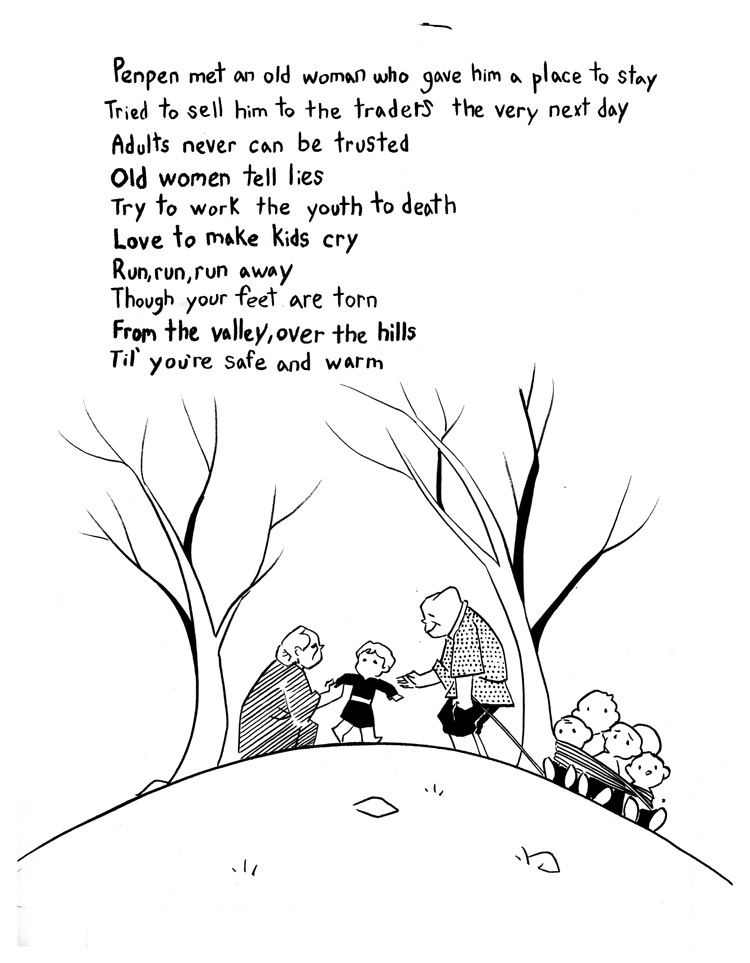 Penpen met an old woman who gave him a place to stay
Tried to sell him to the traders the very next day
Adults never can be trusted
Old women tell lies
Try to work the youth to death
Love to make kids cry
Run, run, run away
Though your feet are torn
From the valley, over the hills
Til' you're safe and warm